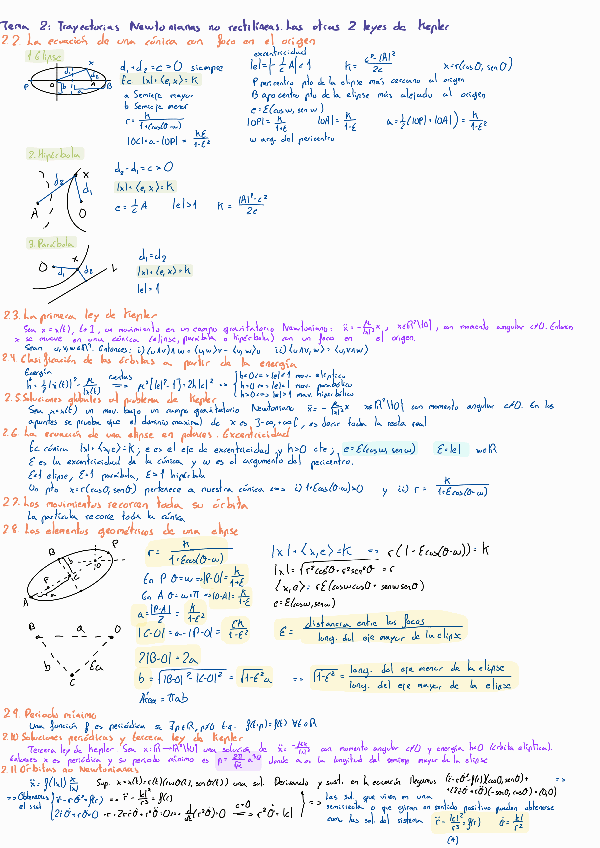 Tema 2: Trayectorias Newtonianas no rectilíneas. Las otras 2 leyes de Kepler
2.2. La ecuación de una cónica con foco en el origen
1. Elipse
d₁+d₂=c>0 siempre
Ec |x|+⟨e,x⟩=K
a Semieje mayor
b Semieje menor
r = K / 1+εcos(θ-ω)
|OC|=a-|OP| = Kε / 1-ε²
excentricidad
|e|=|-1/c A|<1 K = c²-|A|² / 2c x=r(cosθ, senθ)
P pericentro pto de la elipse más cercano al origen
B apocentro pto de la elipse más alejado al origen
e=ε(cosω, senω)
|OP| = K / 1+ε |OA| = K / 1-ε a=1/2(|OP|+|OA|) = K / 1-ε²
ω arg. del pericentro
2. Hipérbola
d₂-d₁=c>0
|x|+⟨e,x⟩=K
e=1/c A |e|>1 K = |A|²-c² / 2c
3. Parábola
d₁=d₂
|x|+⟨e,x⟩=K
|e|=1
2.3. La primera ley de Kepler
Sea x=x(t), t∈I, un movimiento en un campo gravitatorio Newtoniano: ẍ=-μ/|x|³ x, x∈R³\{0}, con momento angular c≠0. Entonces
x se mueve en una cónica (elipse, parábola o hipérbola) con un foco en el origen.
Sean u,v,w∈R³. Entonces: i) (u∧v)∧w=⟨u,w⟩v-⟨v,w⟩u ii) ⟨u∧v,w⟩=⟨u,v∧w⟩
2.4 Clasificación de las órbitas a partir de la energía
Energía
h=1/2|ẋ(t)|²-μ/|x(t)| μ²(|e|²-1)=2h|c|²
h<0 <=> |e|<1 mov. elíptico
h=0 <=> |e|=1 mov. parabólico
h>0 <=> |e|>1 mov. hiperbólico
2.5 Soluciones globales al problema de Kepler
Sea x=x(t) un mov. bajo un campo gravitatorio Newtoniano ẍ=-μ/|x|³ x x∈R³\{0} con momento angular c≠0. En los
apuntes se prueba que el dominio maximal de x es ]-∞,+∞[, es decir toda la recta real
2.6 La ecuación de una elipse en polares. Excentricidad
Ec cónica |x|+⟨x,e⟩=K; e es el eje de excentricidad y K>0 cte; e=ε(cosω, senω) ε=|e| ω∈R
ε es la excentricidad de la cónica y ω es el argumento del pericentro.
ε<1 elipse, ε=1 parábola, ε>1 hipérbola
Un pto x=r(cosθ, senθ) pertenece a nuestra cónica <=> i) 1+εcos(θ-ω)>0 y ii) r = K / 1+εcos(θ-ω)
2.7. Los movimientos recorren toda su órbita
La partícula recorre toda la cónica
2.8. Los elementos geométricos de una elipse
r = K / 1+εcos(θ-ω)
En P θ=ω => |P-O| = K / 1+ε
En A θ=ω+π => |O-A| = K / 1-ε
a = |P-A| / 2 = K / 1-ε²
|C-O|=a-|P-O| = εK / 1-ε²
2|B-O|=2a
b=√|B-O|²-|C-O|² = √1-ε² a
Área=πab
|x|+⟨x,e⟩=K <=> r(1+εcos(θ-ω))=K
|x|=√r²cos²θ+r²sen²θ = r
⟨x,e⟩=rε(cosωcosθ+senωsenθ)
e=ε(cosω,senω)
ε = distancia entre los focos / long. del eje mayor de la elipse
=> √1-ε² = long. del eje menor de la elipse / long. del eje mayor de la elipse
2.9. Período mínimo
Una función f es periódica si ∃p∈R, p≠0 t.q. f(t+p)=f(t) ∀t∈R
2.10 Soluciones periódicas y tercera ley de Kepler
Tercera ley de Kepler Sea x:R→R³\{0} una solución de ẍ=-μx/|x|³ con momento angular c≠0 y energía h<0 (órbita elíptica).
Entonces x es periódica y su período mínimo es p=2π/√μ a^3/2 donde a es la longitud del semieje mayor de la elipse
2.11 Órbitas no Newtonianas
ẍ=f(|x|) x/|x| Sup. x=x(t)=r(t)(cosθ(t), senθ(t)) una sol. Derivando y sust. en la ecuación llegamos (r̈-rθ̇²-f(r))(cosθ,senθ)+
+(2ṙθ̇+rθ̈)(-senθ,cosθ)=(0,0) =>
=> Obtenemos el sist. r̈-rθ̇²=f(r) => r̈-|c|²/r³=f(r)
2ṙθ̇+rθ̈=0 r·2ṙθ̇+r²θ̈=0 => d/dt(r²θ̇)=0 => r²θ̇=|c|
=> Las sol. que viven en una
semirrecta o que giran en sentido positivo pueden obtenerse
como las sol. del sistema r̈-|c|²/r³=f(r) θ̇=|c|/r²
(*)